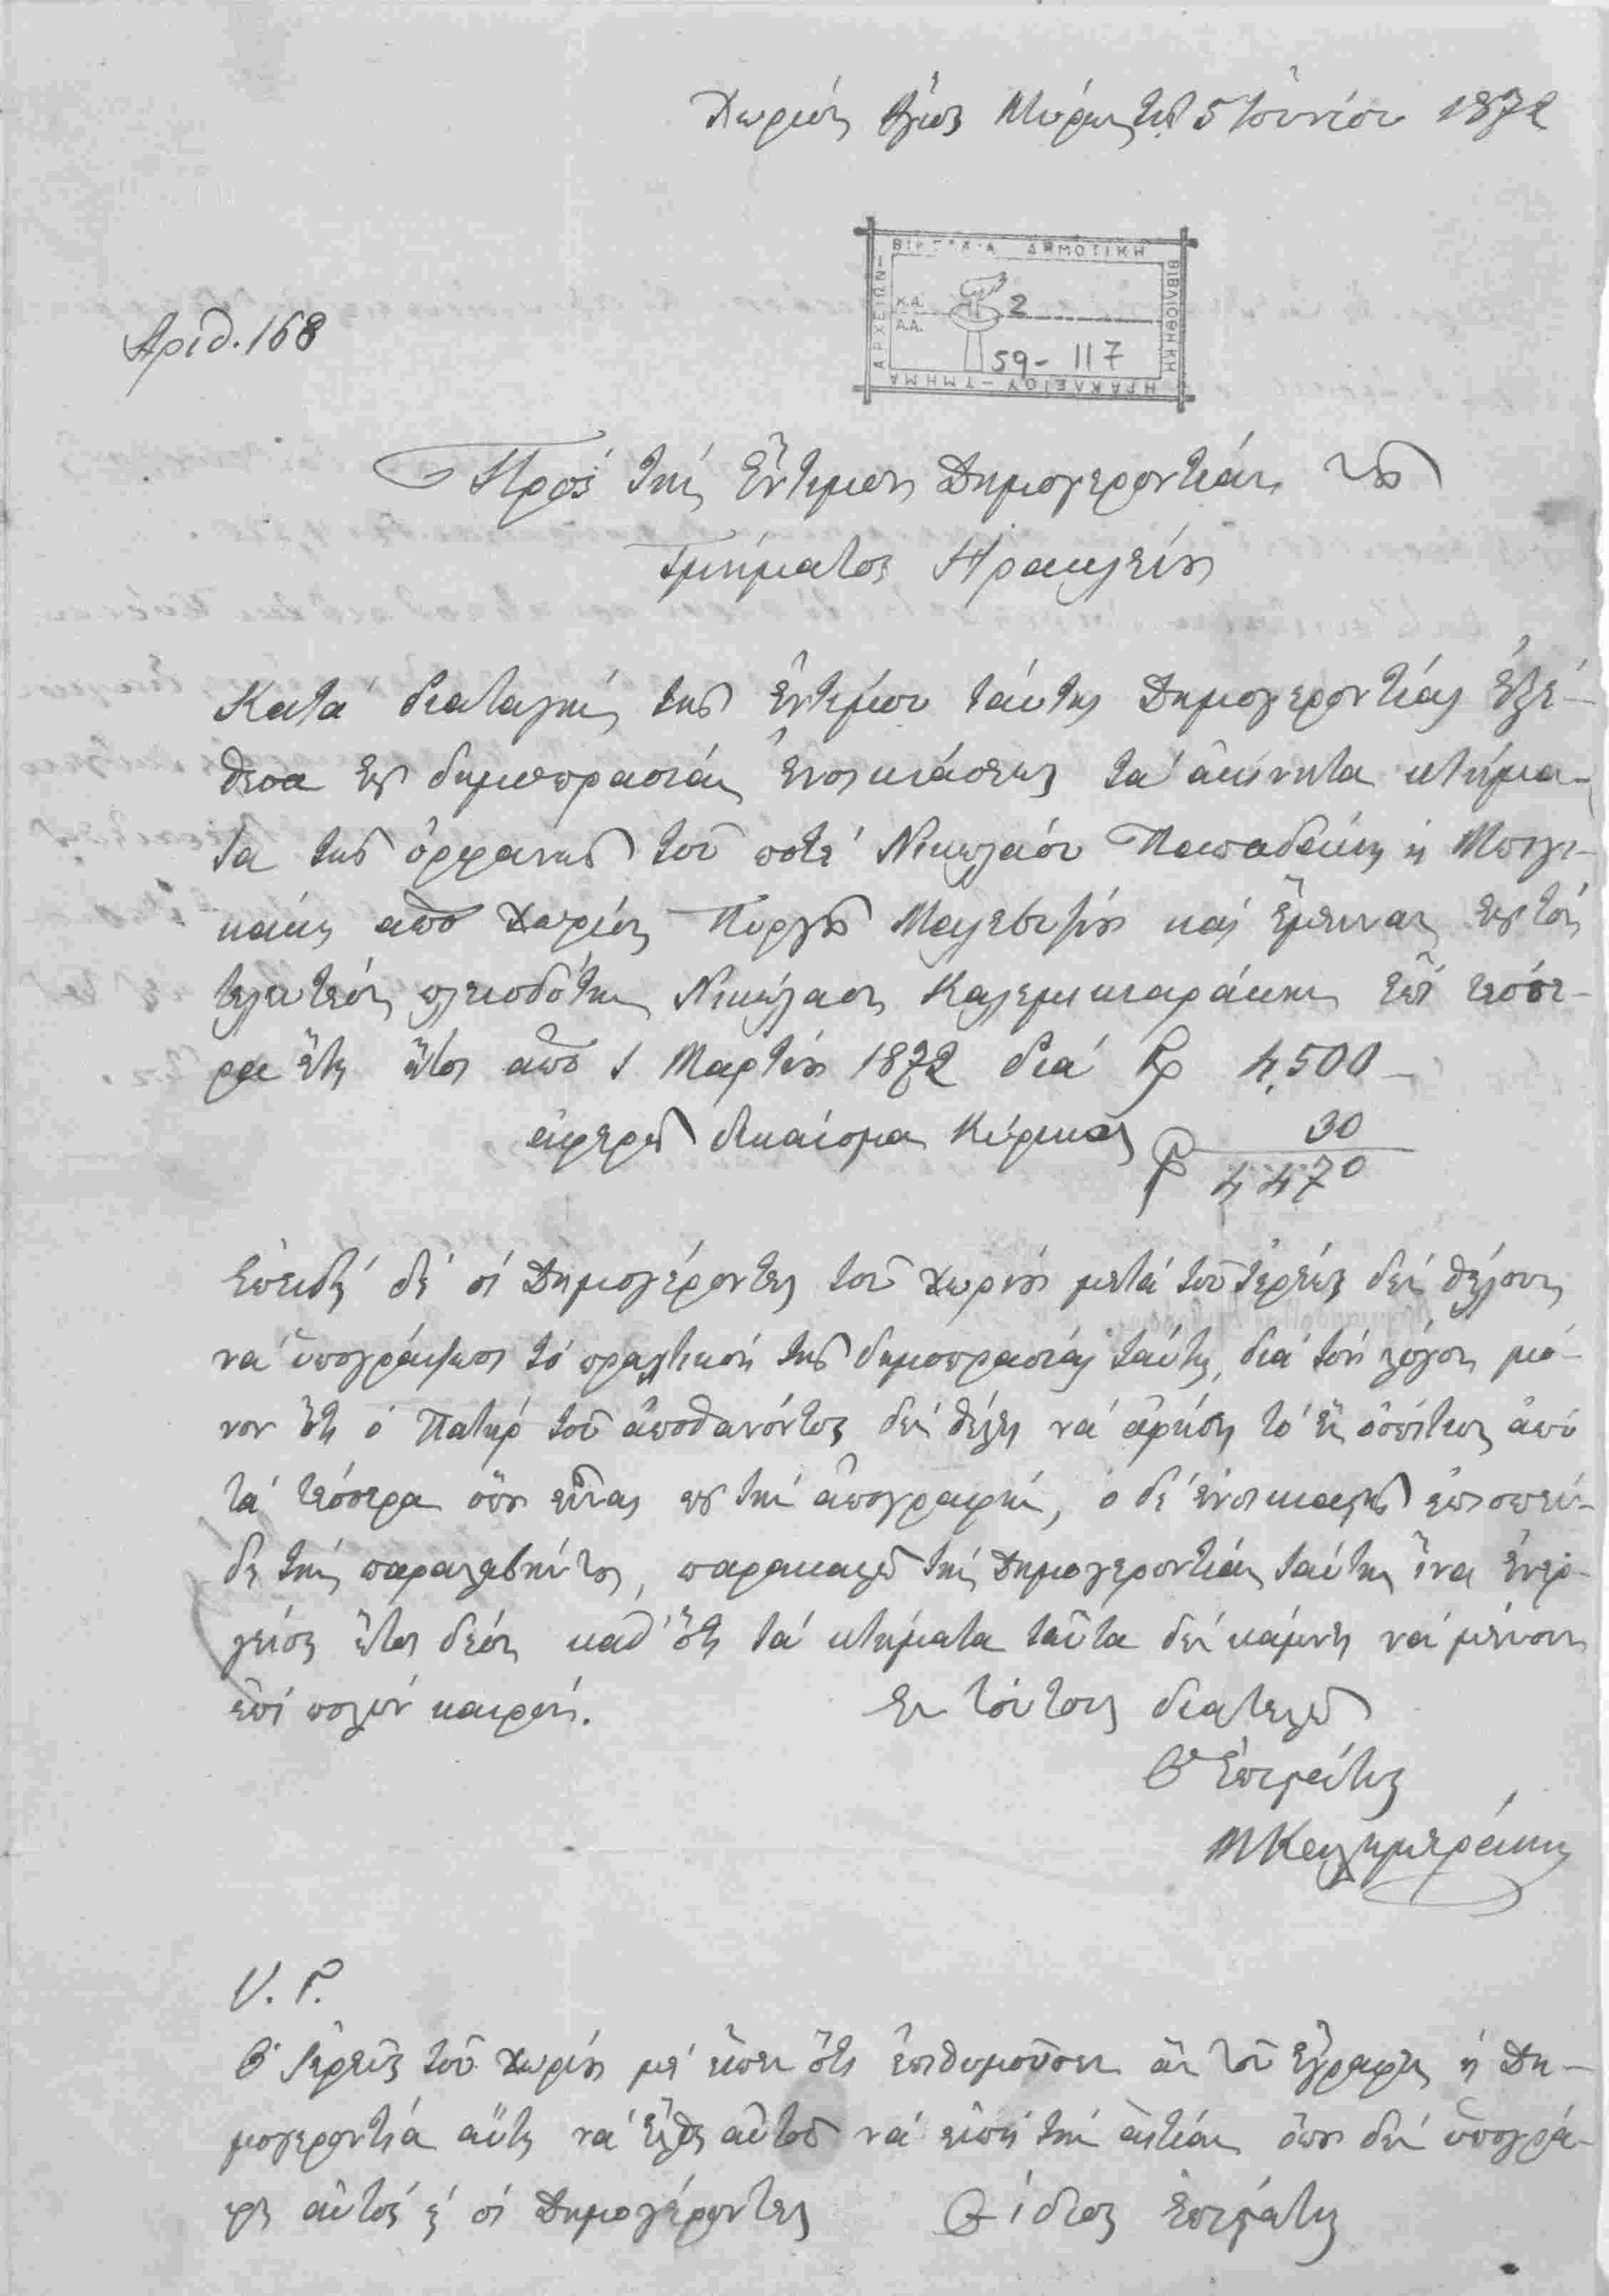 Χωρίον Άγιος Μύρων τη 5 Ιουνίου 1872
ΒΙΚΕΛΑΙΑ ΔΗΜΟΤΙΚΗ
ΒΙΒΛΙΟΘΗΚΗ
ΗΡΑΚΛΕΙΟΥ - ΤΜΗΜΑ
ΑΡΧΕΙΩΝ
Κ.Α. 2
Α.Α. 59-117
Αριθ. 168
Προς την Έντιμον Δημογεροντίαν του
Τμήματος Ηρακλείου
Κατά διαταγήν της εντίμου ταύτης Δημογεροντίας εξέ-
θεσα εις δημοπρασίαν ενοικιάσεως τα ακίνητα κτήμα-
τα της ορφανής του ποτέ Νικολάου Παπαδάκη ή
κάκη από χωρίον Πύργου Μαλεβυζίου και έμειναν εις τον
τελευταίον πλειοδότην Νικόλαον επί τέσσε-
ρα έτη από 1 Μαρτίου 1872 διά γρ 4,500
αφερώ δικαίωμα κήρυκος 30
γρ 4470
Επειδή δε οι Δημογέροντες του χωρίου μετά του Ιερέως δεν θέλουν
να υπογράψωσι το πρακτικόν της δημοπρασίας ταύτης, διά τον λόγον μό-
νον ότι ο Πατήρ του αποθανόντος δεν θέλει να αφήση το έν οσπίτιον από
τα τέσσερα όπου είναι εις την απογραφήν, ο δε ενοικιαστής επισπεύ-
δει την παραλαβήν των, παρακαλώ την Δημογεροντίαν ταύτην ίνα ενερ-
γήση δέον καθ' ότι τα κτήματα ταύτα δεν κάμνει να μείνουν
επί πολύν καιρόν. Εν τούτοις διατελώ
Ο Επιστάτης
Μ Καλημεράκης
Υ. Γ.
Ο Ιερεύς του χωρίου με είπεν ότι επιθυμούσεν αν του έγραφεν η Δη-
μογεροντία αύτη να έλθη αυτού να ειπή την αιτίαν όπου δεν υπογρά-
φει αυτός ή οι Δημογέροντες Ο ίδιος Επιστάτης